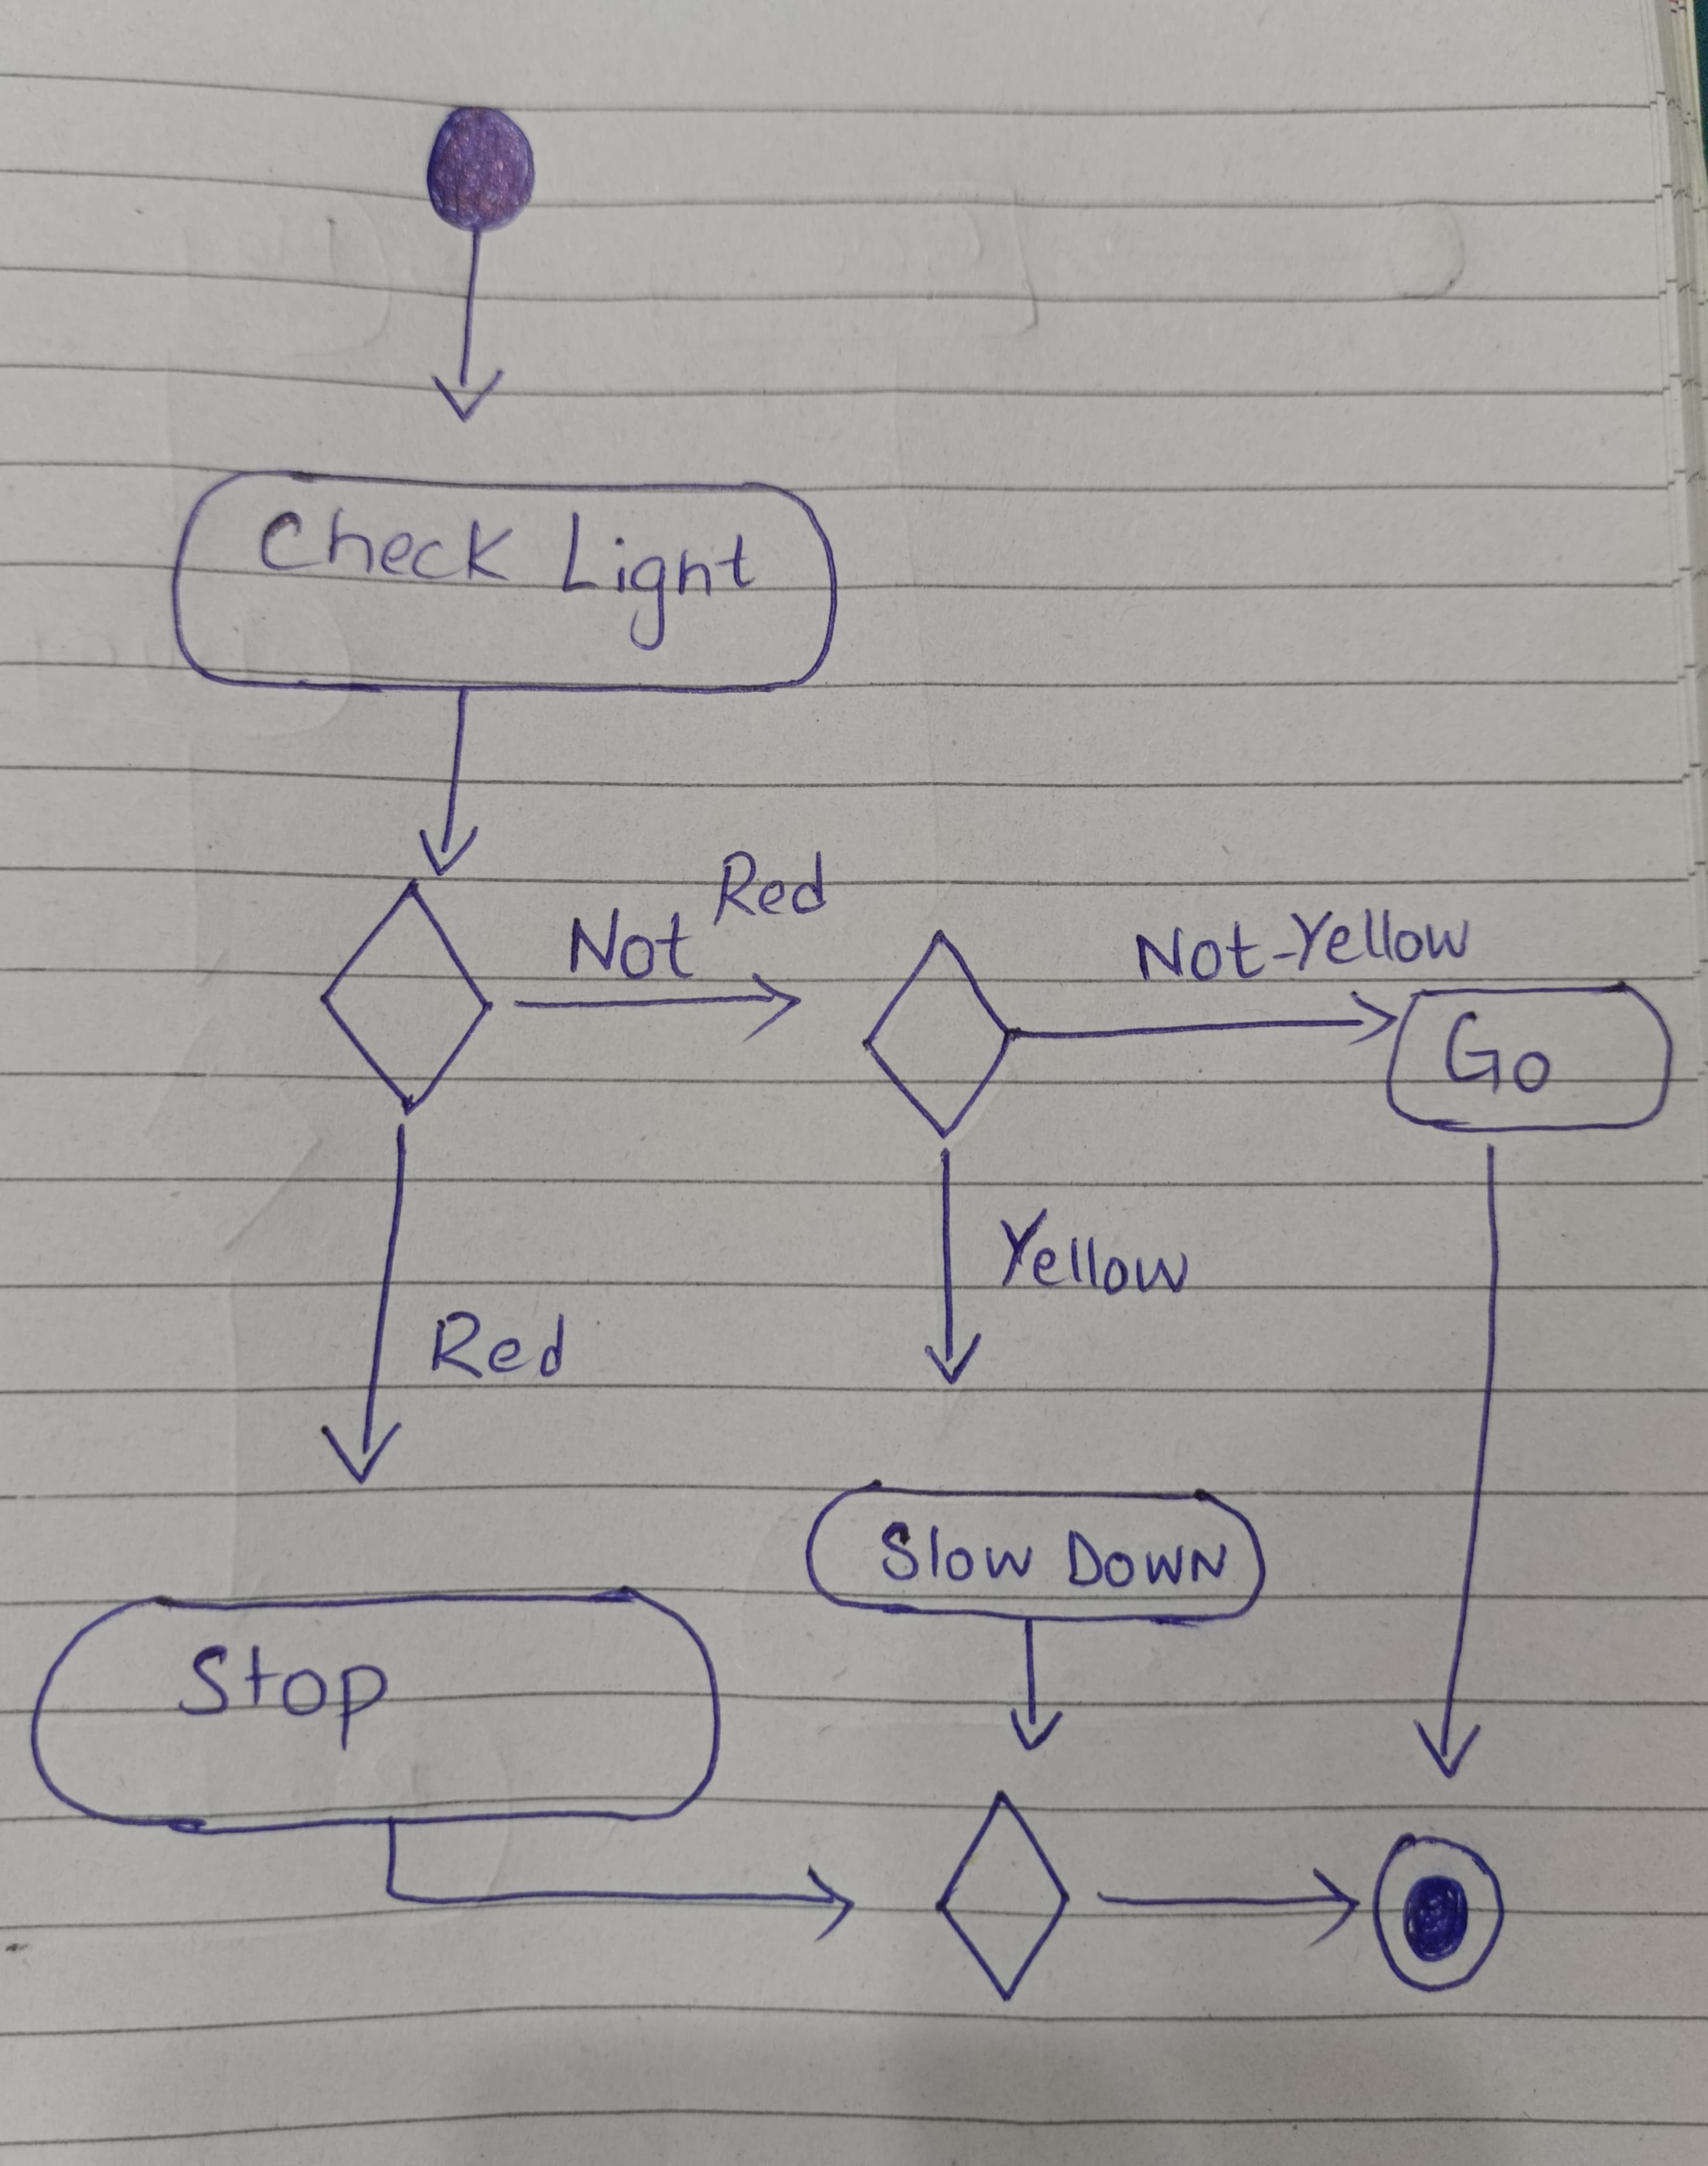 Check Light
Not Red
Not-Yellow
Go
Yellow
Red
Slow Down
Stop